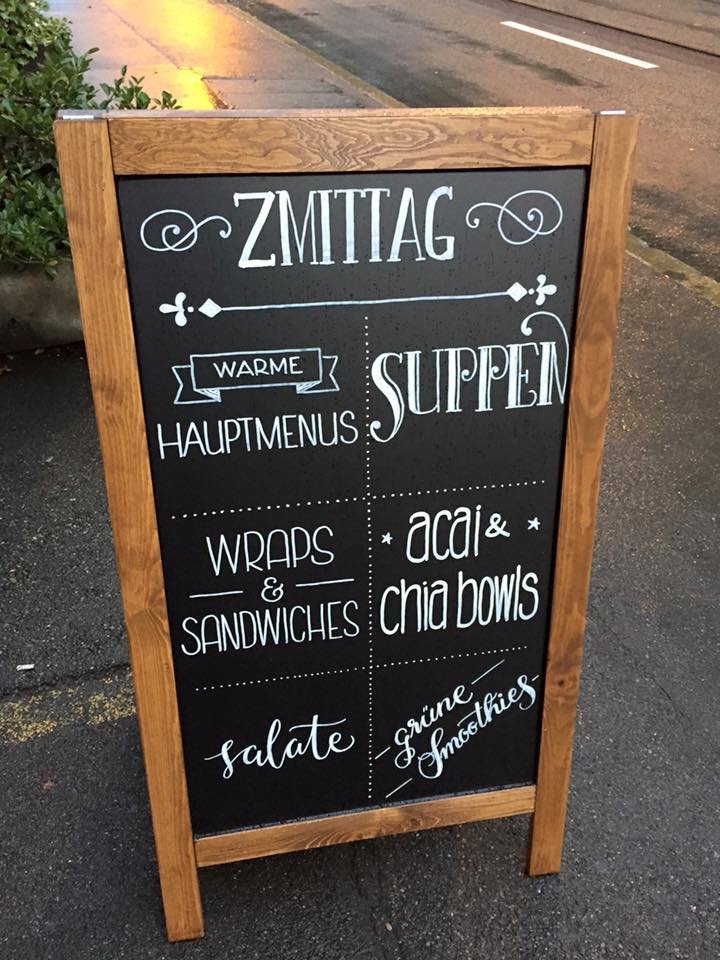 ZMITTAG
WARME
HAUPTMENUS
SUPPEN
WRAPS
&
SANDWICHES
acai &
chia bowls
salate
grüne
Smoothies